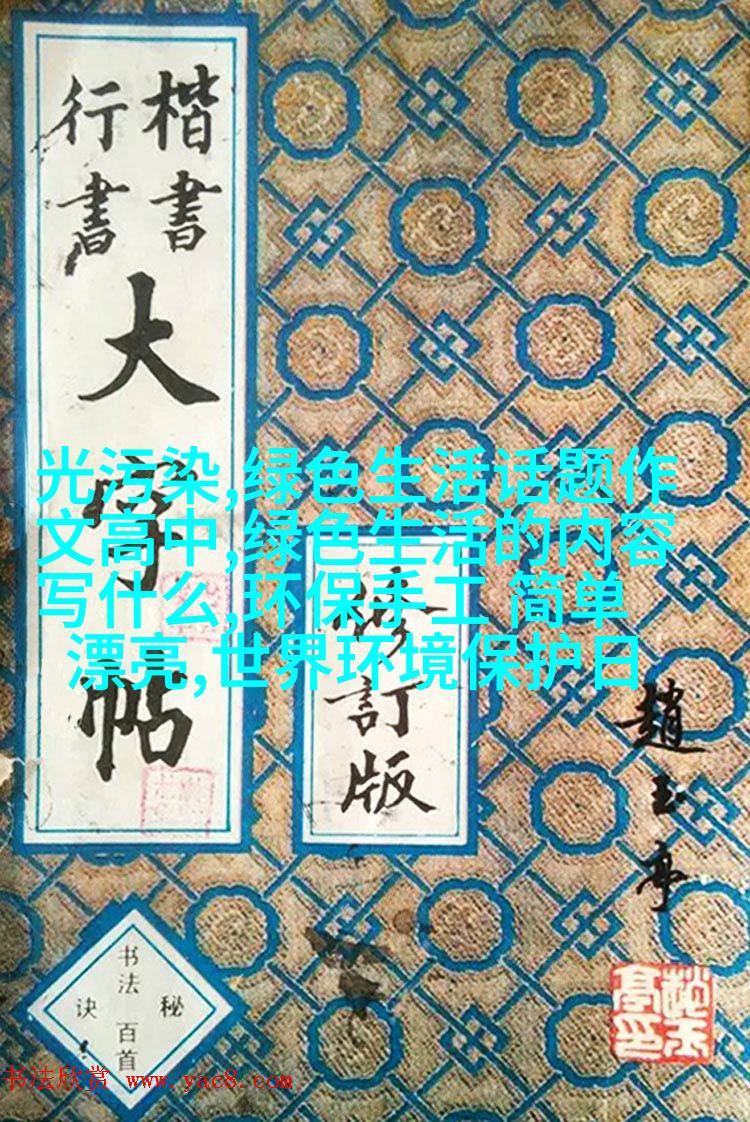 楷書
行書
大字帖
修訂版
趙玉亭
书法百首
秘诀
光污染,绿色生活话题作
文高中,绿色生活的内容
写什么,环保手工 简单
漂亮,世界环境保护日
书法欣赏 www.yac8.com